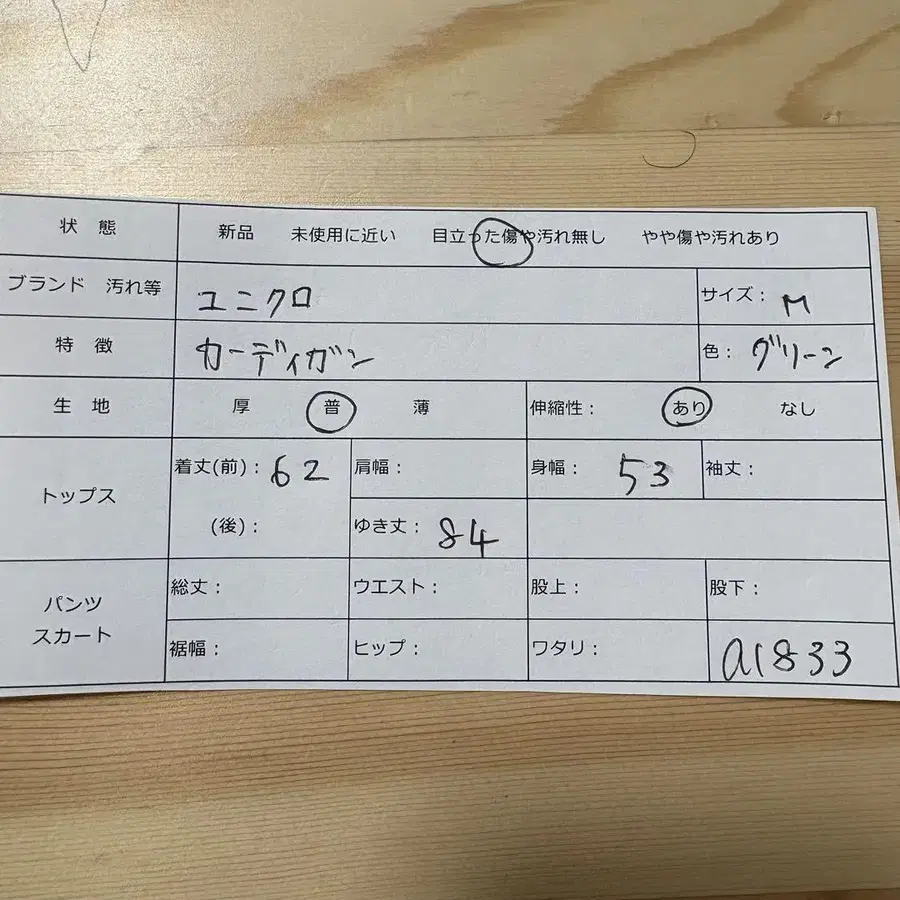 状 態 新品 未使用に近い 目立った傷や汚れ無し やや傷や汚れあり
ブランド 汚れ等 ユニクロ サイズ： M
特 徴 カーディガン 色： グリーン
生 地 厚 普 薄 伸縮性： あり なし
トップス 着丈(前)： 62 肩幅： 身幅： 53 袖丈：
(後)： ゆき丈： 84
パンツ スカート 総丈： ウエスト： 股上： 股下：
裾幅： ヒップ： ワタリ： a1833